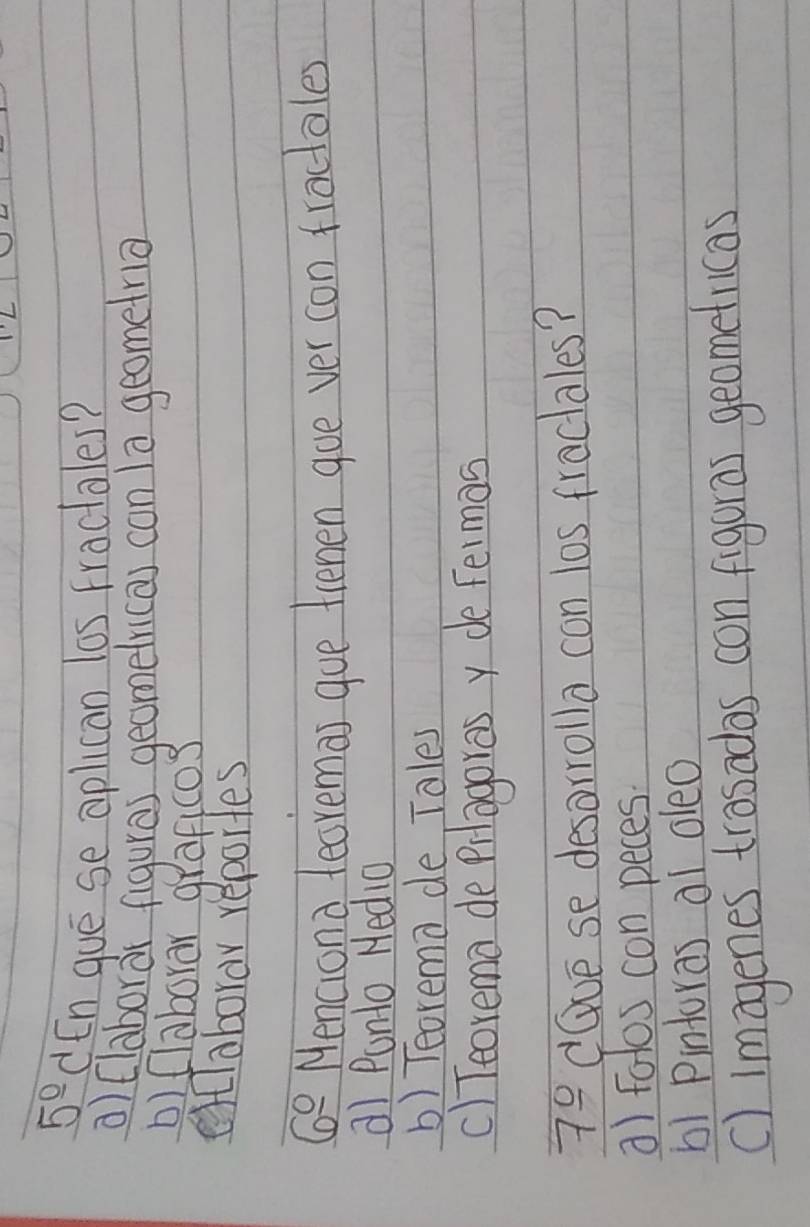 5º ¿En qué se aplican los fractales?
a) Elaborar figuras geometricas con la geometria
b) Elaborar graficos
c) Elaborar reportes
6º Menciona teoremas que tienen que ver con fractales
a) Punto Medio
b) Teorema de Tales
c) Teorema de Pitagoras y de Fermas
7º ¿Qué se desarrolla con los fractales?
a) Fotos con peces.
b) Pinturas al oleo
c) Imagenes trasadas con figuras geometricas